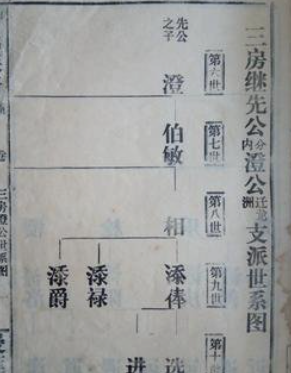 三房继先公分内澄公迁龙洲支派世系图
第六世
先公之子
澄
第七世
伯敏
第八世
相
第九世
添俸
添禄
添爵
第十
进
三房澄公世系图